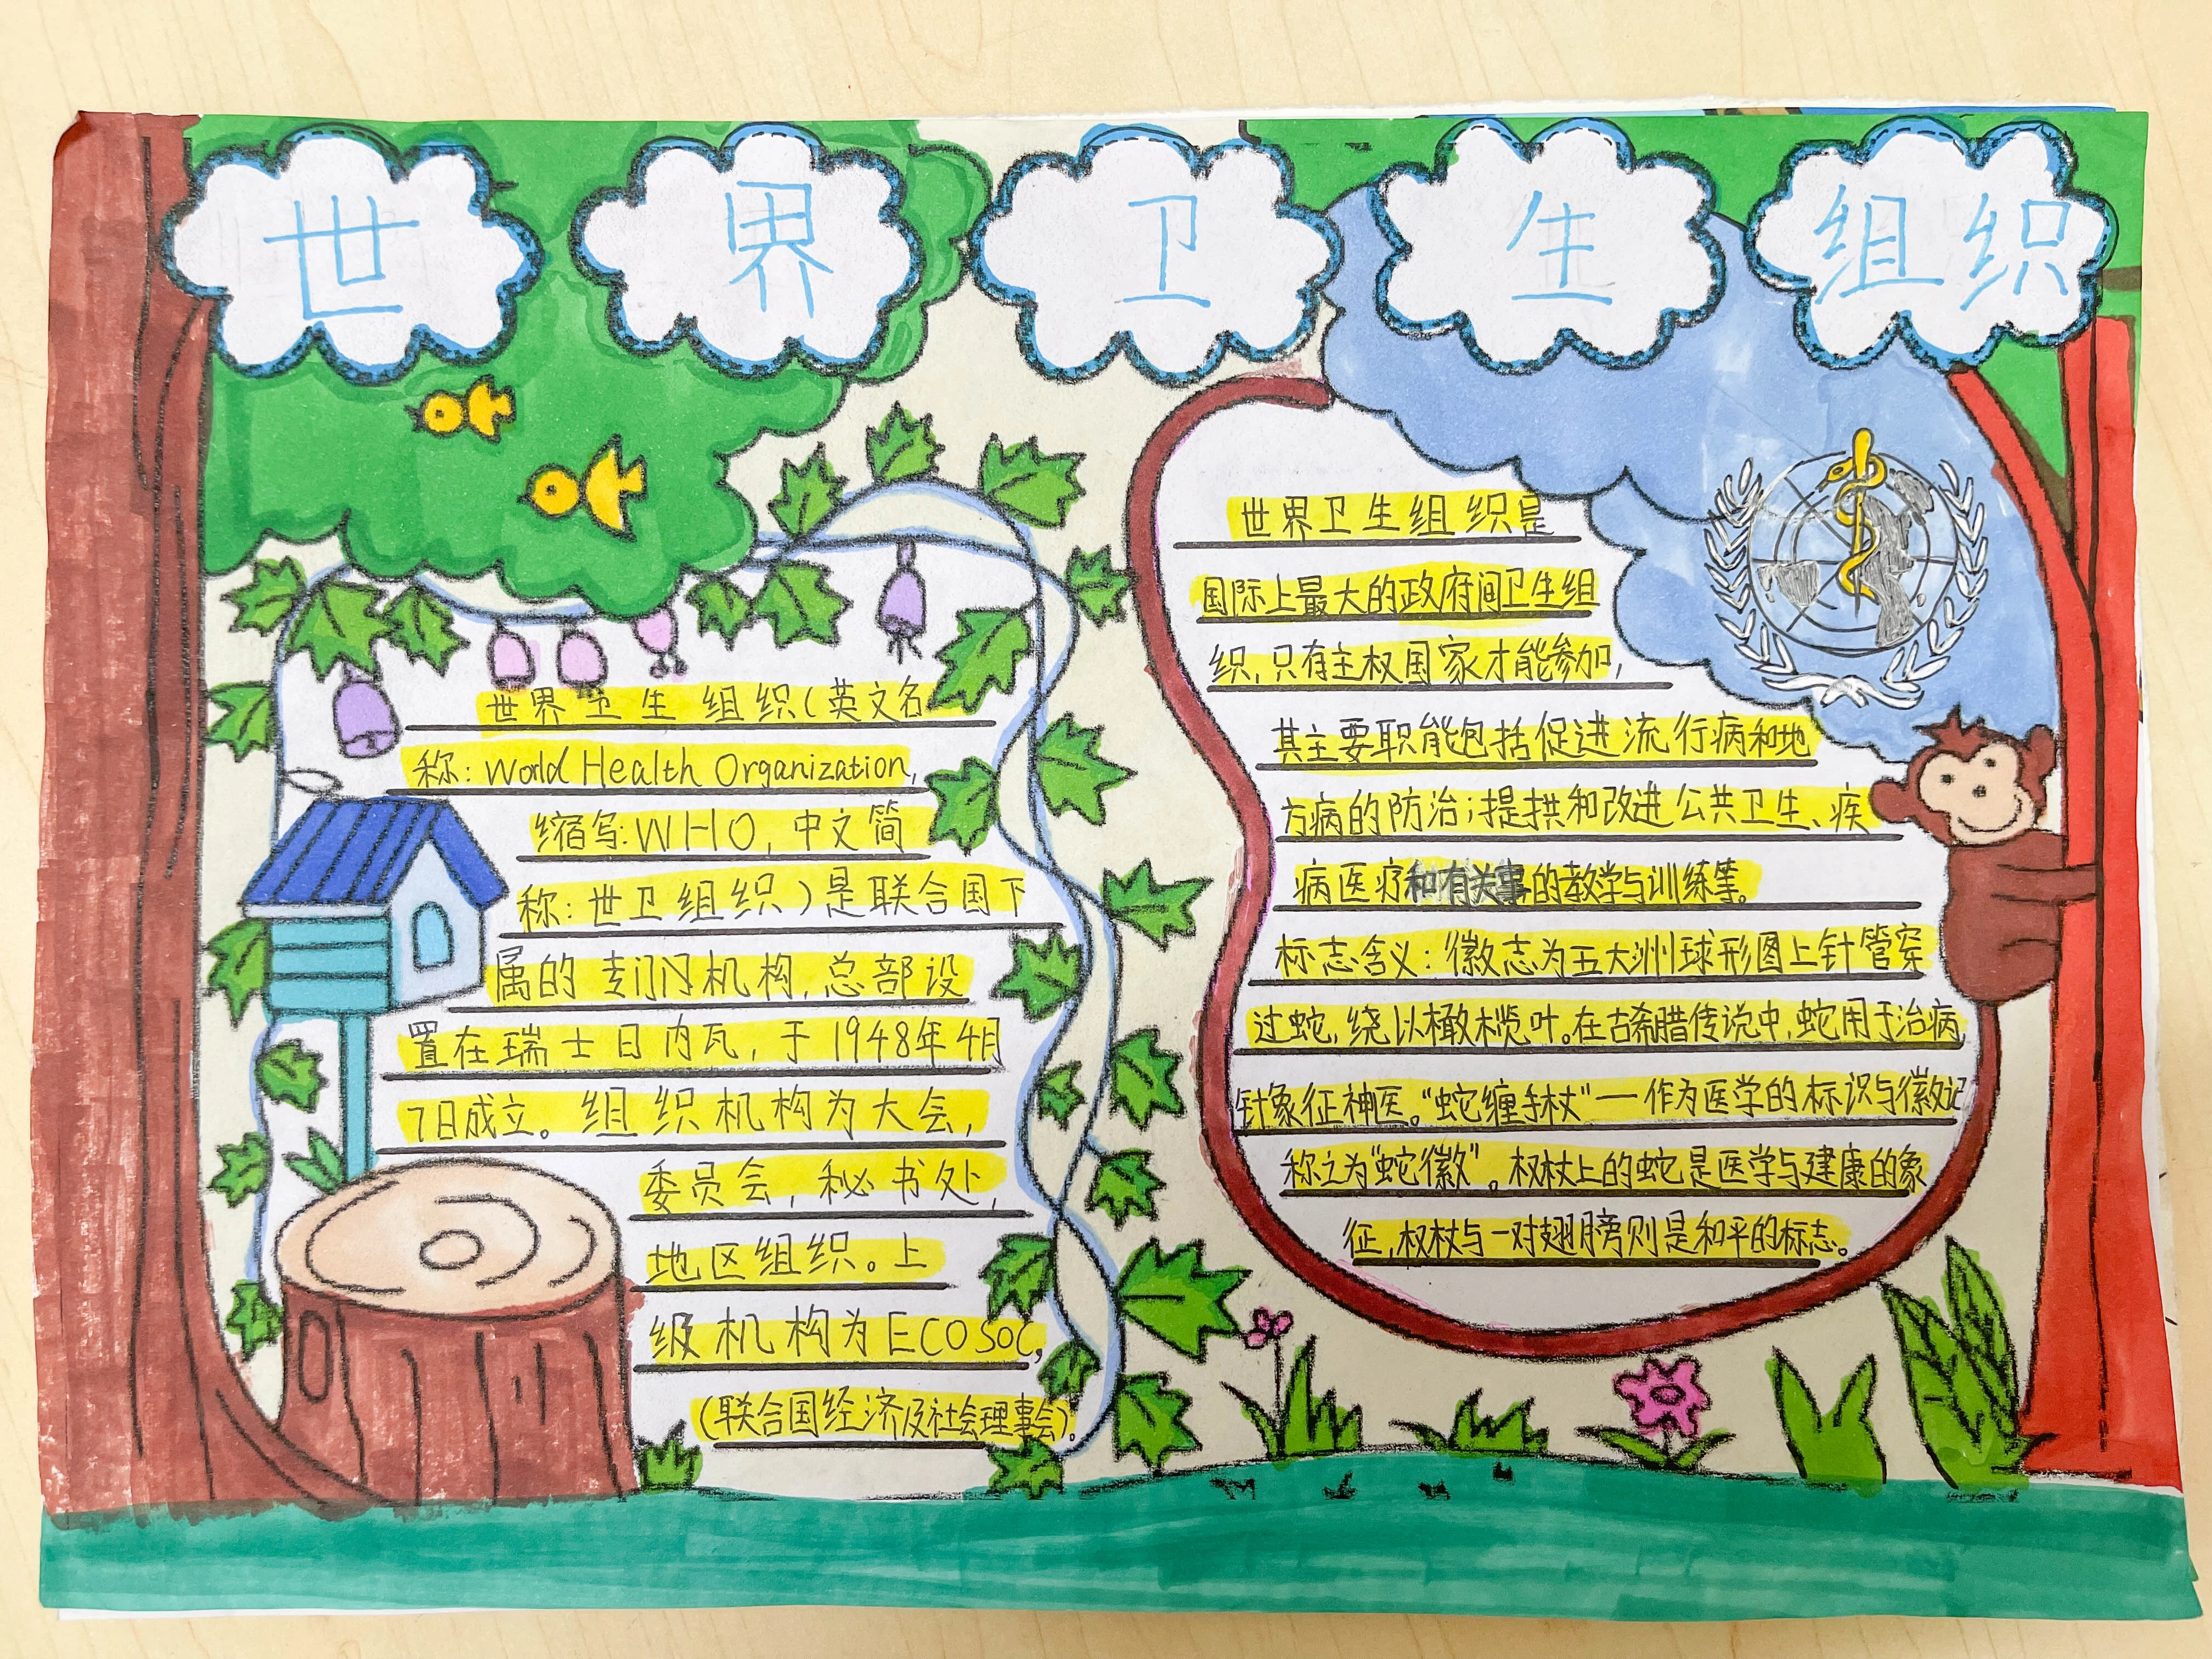 世界卫生组织
世界卫生组织(英文名
称:World Health Organization,
缩写:WHO,中文简
称:世卫组织)是联合国下
属的专门机构,总部设
置在瑞士日内瓦,于1948年4月
7日成立。组织机构为大会,
委员会,秘书处,
地区组织。上
级机构为ECOSOC,
(联合国经济及社会理事会)。
世界卫生组织是
国际上最大的政府间卫生组
织,只有主权国家才能参加,
其主要职能包括促进流行病和地
方病的防治;提拱和改进公共卫生、疾
病医疗和有关事的教学与训练等。
标志含义:徽志为五大洲球形图上针管穿
过蛇,绕以橄榄叶。在古希腊传说中,蛇用于治病,
针象征神医。“蛇缠手杖”一作为医学的标识与徽记
称之为“蛇徽”。权杖上的蛇是医学与建康的象
征,权杖与一对翅膀则是和平的标志。